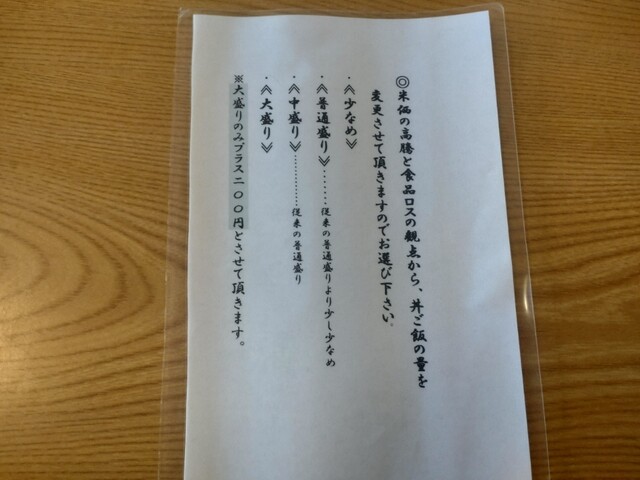 ◎米価の高騰と食品ロスの観点から、丼ご飯の量を
変更させて頂きますのでお選び下さい。
・≪少なめ≫
・≪普通盛り≫……従来の普通盛りより少し少なめ
・≪中盛り≫…………従来の普通盛り
・≪大盛り≫
※大盛りのみプラス二〇〇円とさせて頂きます。